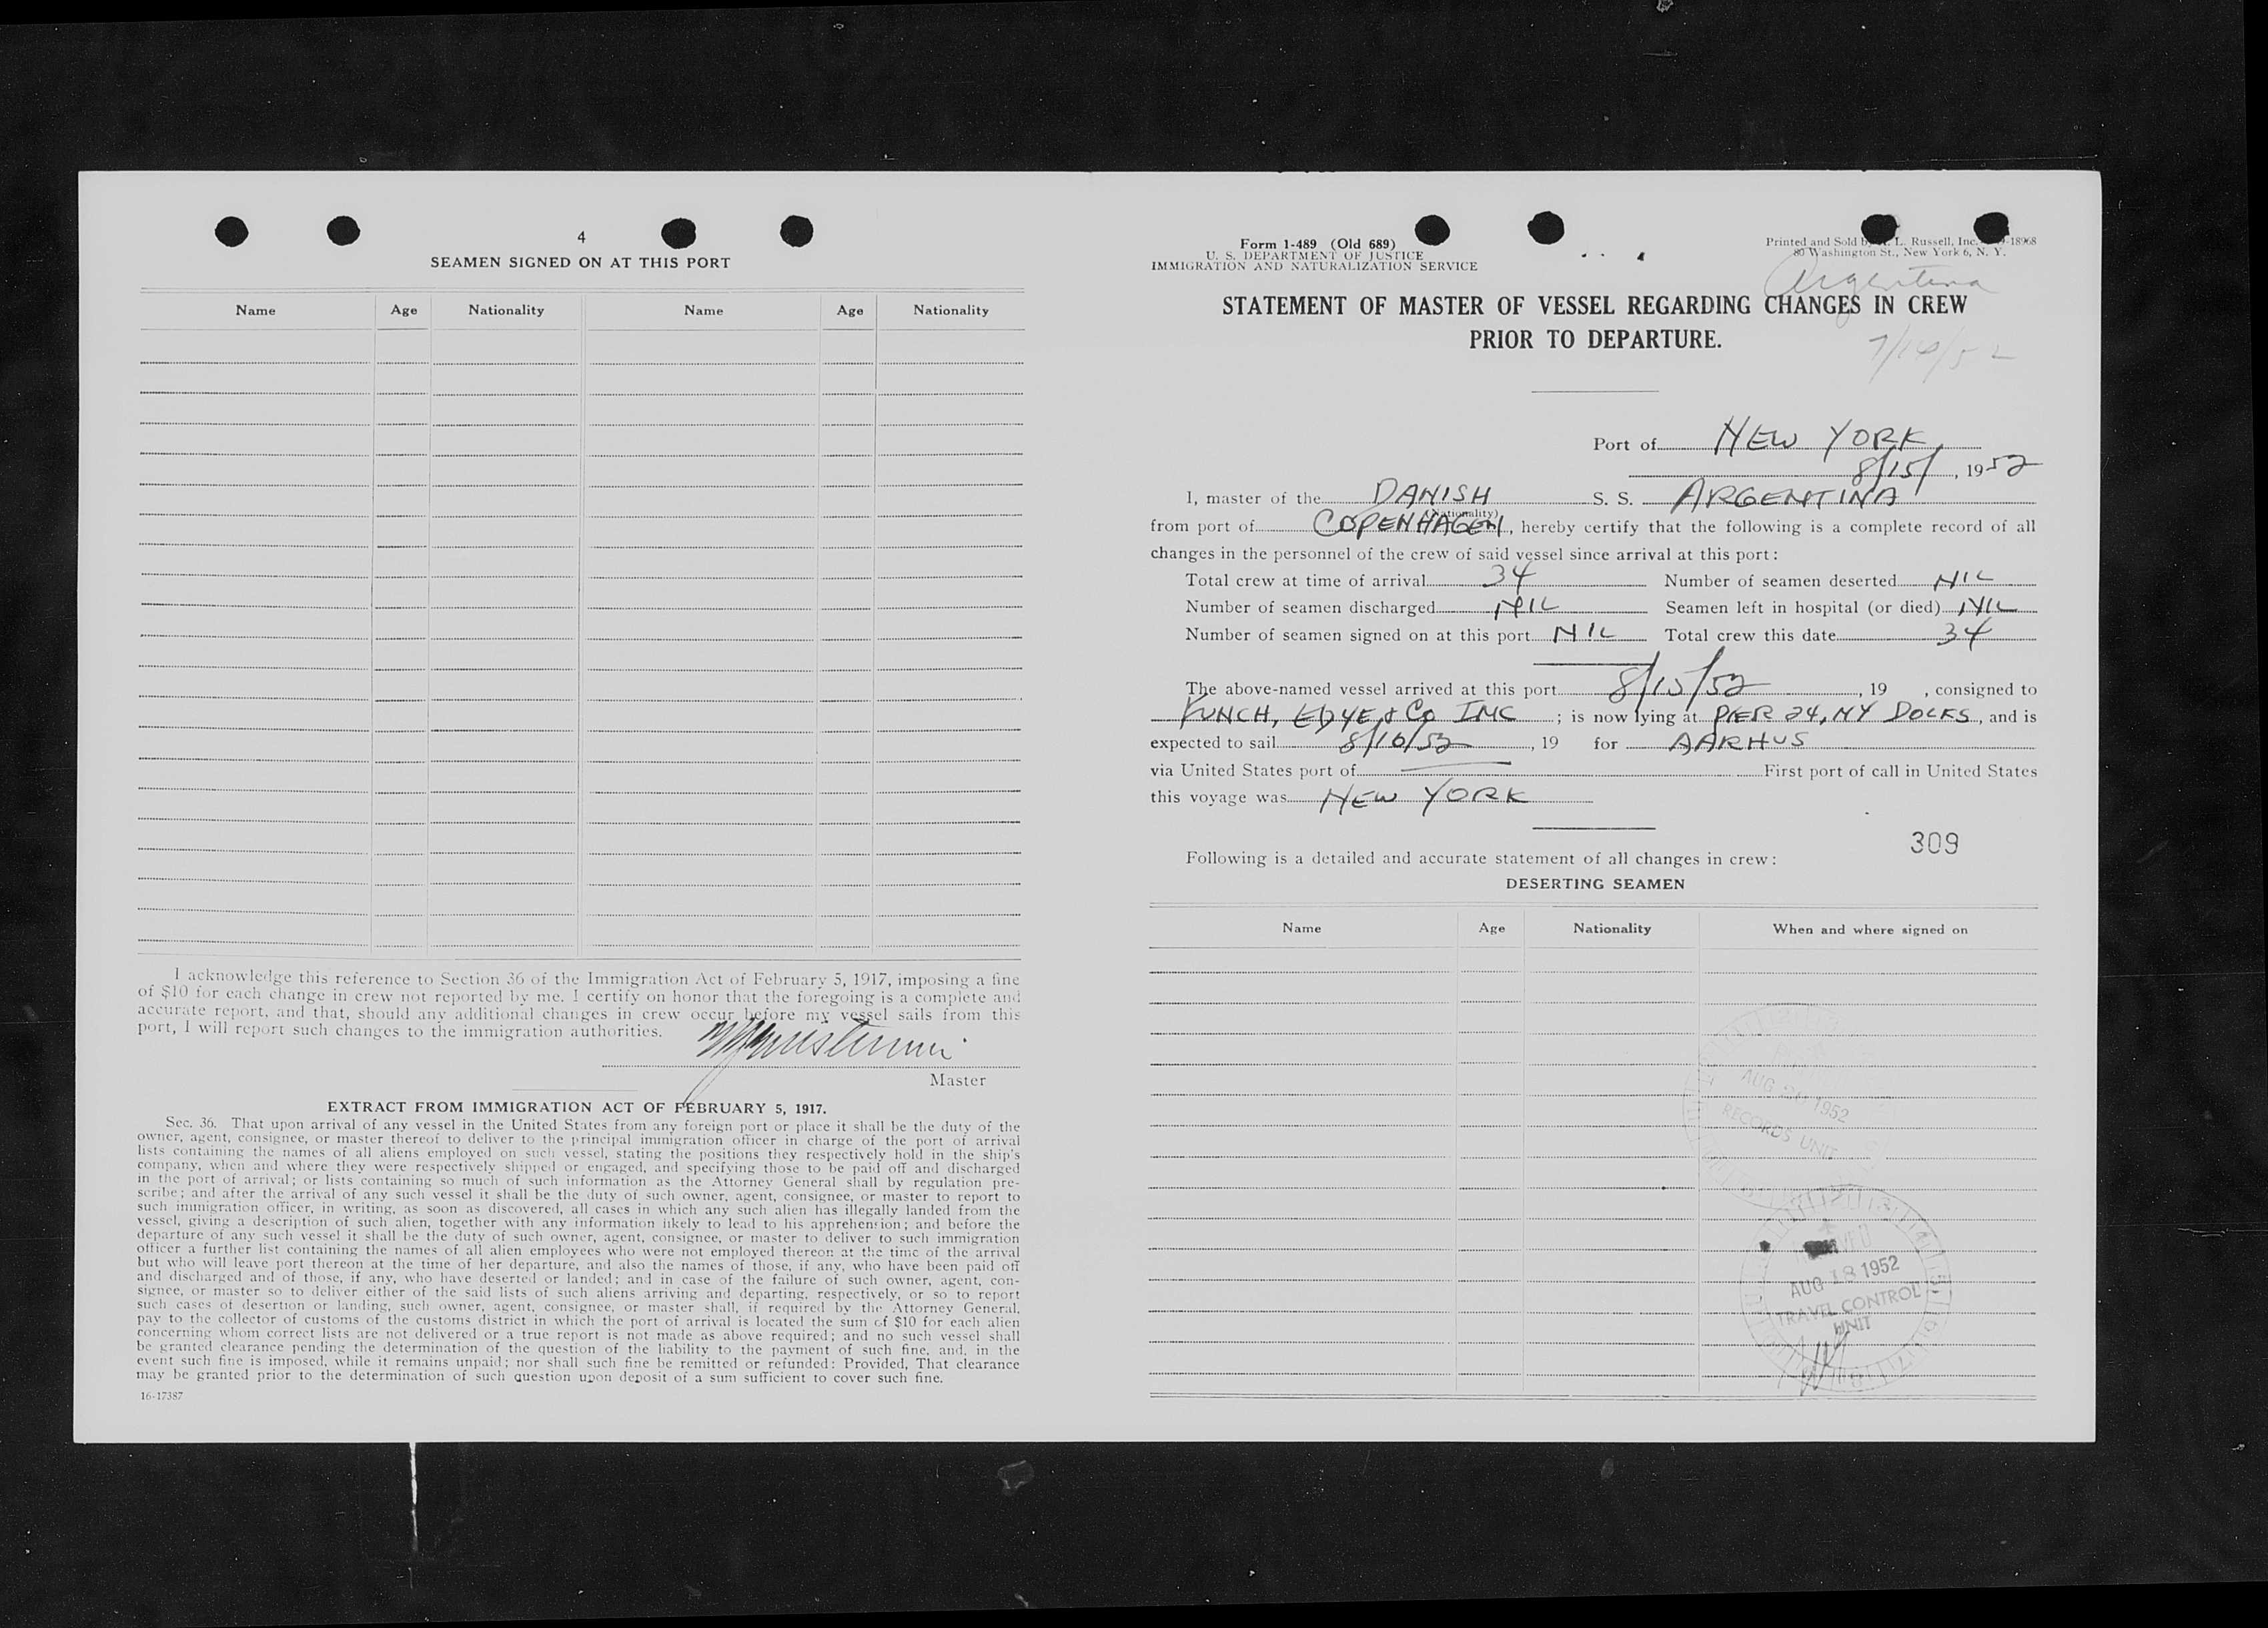 4
SEAMEN SIGNED ON AT THIS PORT
Name Age Nationality Name Age Nationality
I acknowledge this reference to Section 36 of the Immigration Act of February 5, 1917, imposing a fine
of $10 for each change in crew not reported by me. I certify on honor that the foregoing is a complete and
accurate report, and that, should any additional changes in crew occur before my vessel sails from this
port, I will report such changes to the immigration authorities.
Master
EXTRACT FROM IMMIGRATION ACT OF FEBRUARY 5, 1917.
Sec. 36. That upon arrival of any vessel in the United States from any foreign port or place it shall be the duty of the
owner, agent, consignee, or master thereof to deliver to the principal immigration officer in charge of the port of arrival
lists containing the names of all aliens employed on such vessel, stating the positions they respectively hold in the ship's
company, when and where they were respectively shipped or engaged, and specifying those to be paid off and discharged
in the port of arrival; or lists containing so much of such information as the Attorney General shall by regulation pre-
scribe; and after the arrival of any such vessel it shall be the duty of such owner, agent, consignee, or master to report to
such immigration officer, in writing, as soon as discovered, all cases in which any such alien has illegally landed from the
vessel, giving a description of such alien, together with any information likely to lead to his apprehension; and before the
departure of any such vessel it shall be the duty of such owner, agent, consignee, or master to deliver to such immigration
officer a further list containing the names of all alien employees who were not employed thereon at the time of the arrival
but who will leave port thereon at the time of her departure, and also the names of those, if any, who have been paid off
and discharged and of those, if any, who have deserted or landed; and in case of the failure of such owner, agent, con-
signee, or master so to deliver either of the said lists of such aliens arriving and departing, respectively, or so to report
such cases of desertion or landing, such owner, agent, consignee, or master shall, if required by the Attorney General,
pay to the collector of customs of the customs district in which the port of arrival is located the sum of $10 for each alien
concerning whom correct lists are not delivered or a true report is not made as above required; and no such vessel shall
be granted clearance pending the determination of the question of the liability to the payment of such fine, and, in the
event such fine is imposed, while it remains unpaid; nor shall such fine be remitted or refunded: Provided, That clearance
may be granted prior to the determination of such question upon deposit of a sum sufficient to cover such fine.
16-17387
Form 1-489 (Old 689)
U. S. DEPARTMENT OF JUSTICE
IMMIGRATION AND NATURALIZATION SERVICE
Printed and Sold L. Russell, Inc. -18968
80 Washington St., New York 6, N. Y.
Argentina
STATEMENT OF MASTER OF VESSEL REGARDING CHANGES IN CREW
PRIOR TO DEPARTURE.
Port of NEW YORK
8/15/, 1952
I, master of the DANISH S. S. ARGENTINA
(Nationality)
from port of COPENHAGEN, hereby certify that the following is a complete record of all
changes in the personnel of the crew of said vessel since arrival at this port:
Total crew at time of arrival 34 Number of seamen deserted NIL
Number of seamen discharged NIL Seamen left in hospital (or died) NIL
Number of seamen signed on at this port NIL Total crew this date 34
The above-named vessel arrived at this port 8/15/52, 19 , consigned to
FUNCH, EDYE, & Co INC ; is now lying at PIER 24, NY DOCKS, and is
expected to sail 8/16/52, 19 for AARHUS
via United States port of First port of call in United States
this voyage was NEW YORK
309
Following is a detailed and accurate statement of all changes in crew:
DESERTING SEAMEN
Name Age Nationality When and where signed on
AUG 1952
RECORDS UNIT
AUG 18 1952
TRAVEL CONTROL
UNIT